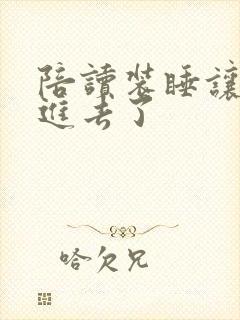 陪讀裝睡讓
進去了
哈欠兄